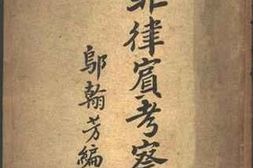 菲律賓考察
鄔翰芳編